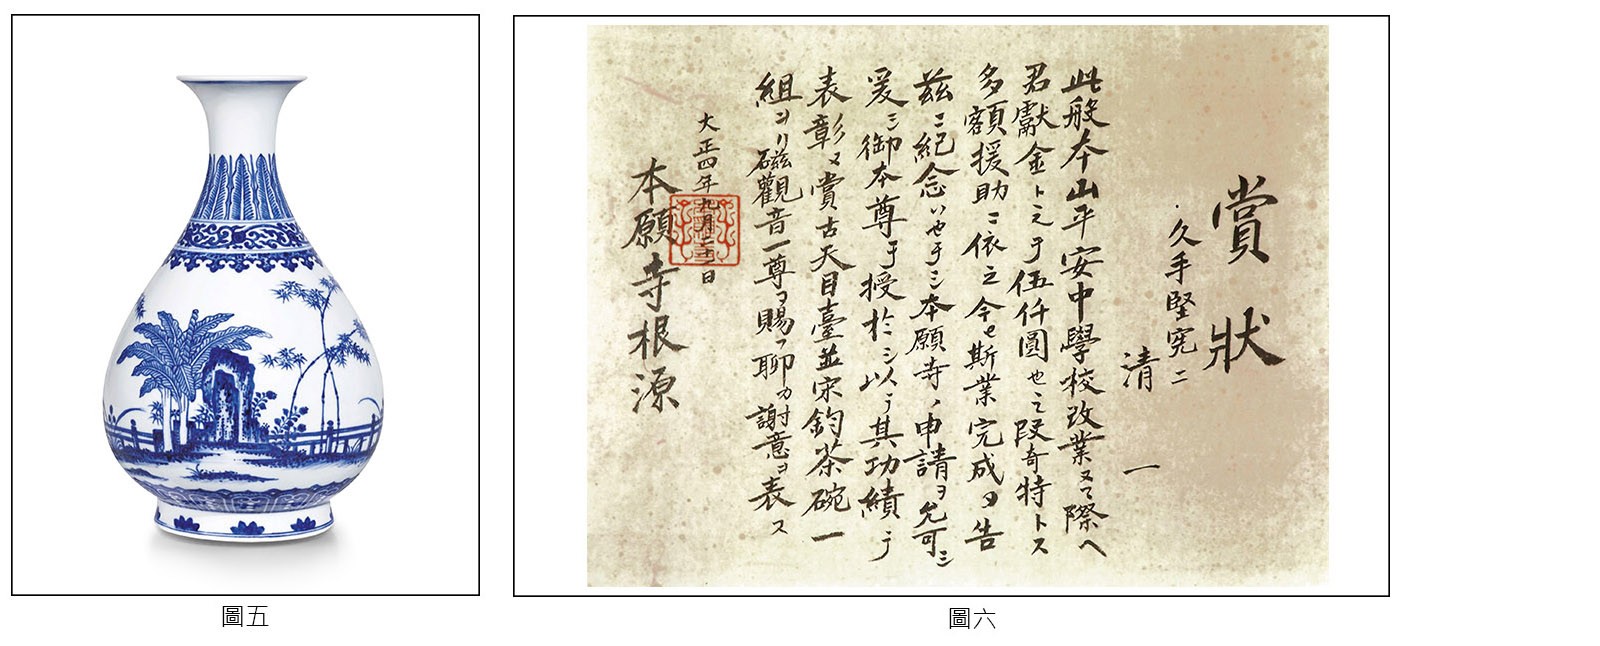 賞狀
久手堅宪二
清一
此般本山平安中學校改業ヌマ際へ
君獻金トシテ伍仟圓也之段奇特トス
多額援助ニ依之今ヤ斯業完成ヲ告
茲ニ紀念
本願寺申請ヲ允可シ
爰ニ御本尊
授於シ以
其功績
表彰ヌ賞古天目臺並宋鈞茶碗一
組
磁觀音一尊ヲ賜
聊カ謝意ヲ表ス
大正四年九月
日
本願寺根源
圖五
圖六